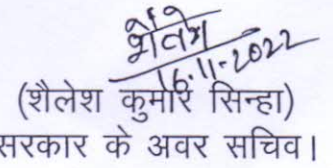 शैलेश
16.11.2022
(शैलेश कुमार सिन्हा)
सरकार के अवर सचिव।